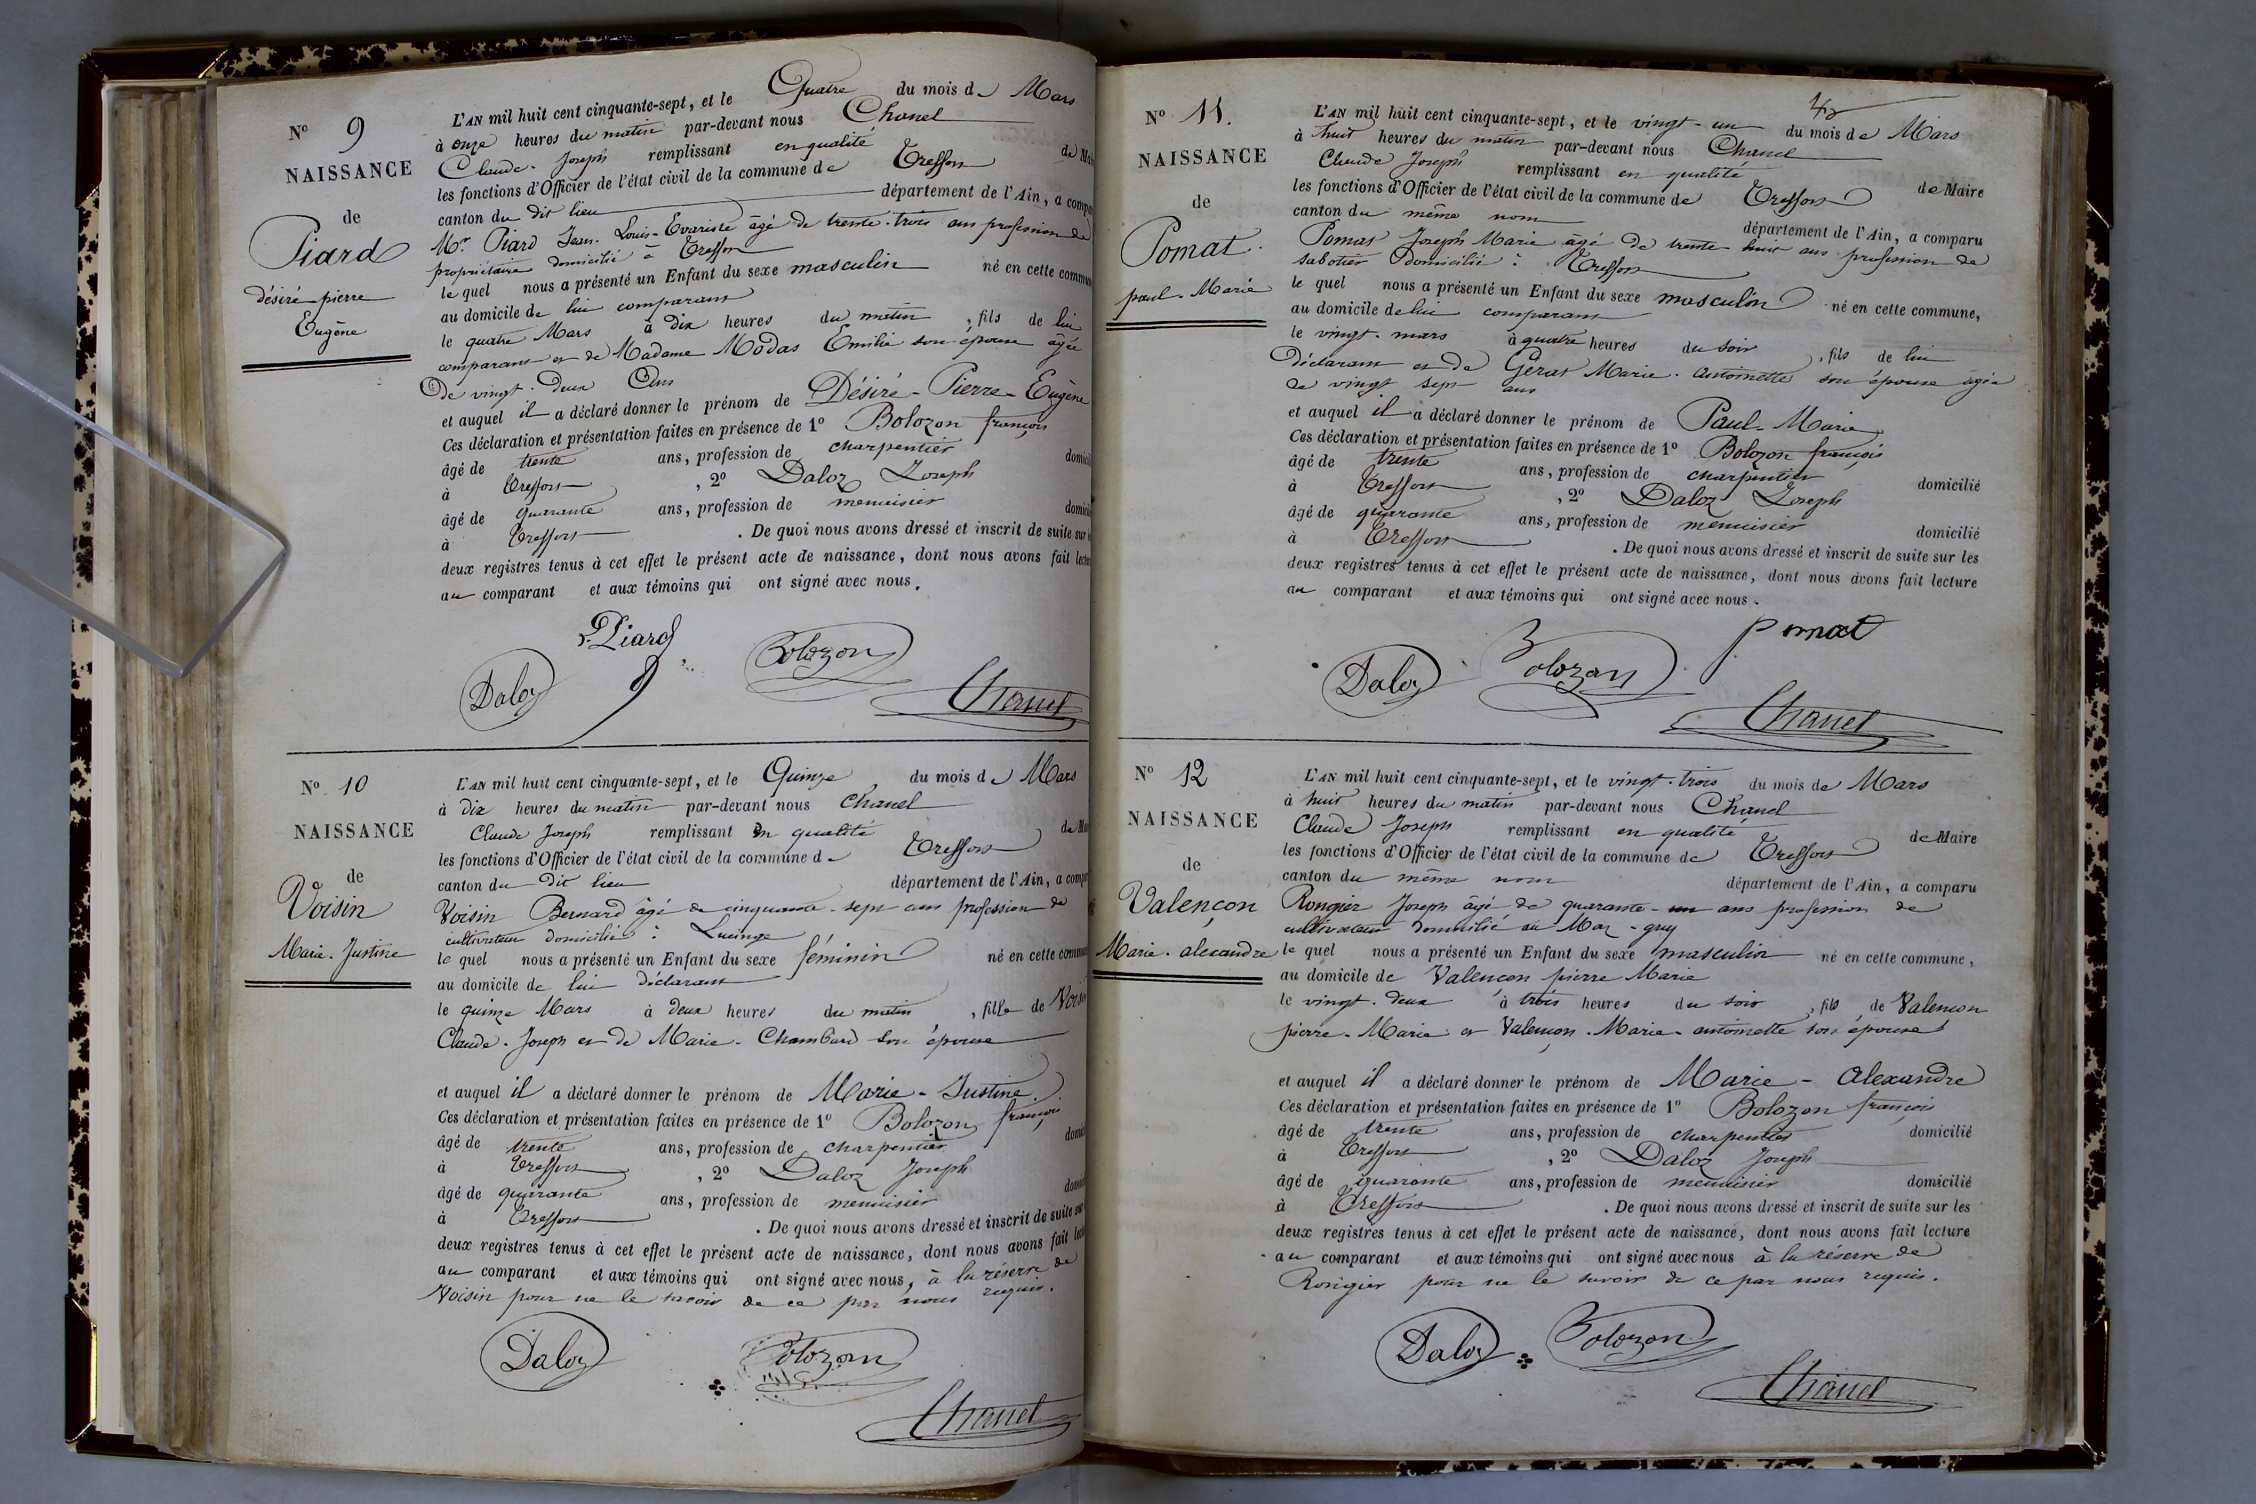 N° 9
NAISSANCE
de
Piard
désiré-pierre
Eugène
L'AN mil huit cent cinquante-sept, et le Quatre du mois de Mars
à onze heures du matin par-devant nous Chanel
Claude-Joseph remplissant en qualité de
les fonctions d'Officier de l'état civil de la commune de Treffort
canton du dit lieu département de l'Ain, a
Mr Piard Jean-Louis-Evariste âgé de trente-trois ans profession de
propriétaire domicilié à Treffort
le quel nous a présenté un Enfant du sexe masculin né en cette
au domicile de lui comparant
le quatre Mars à dix heures du matin, fils de lui
comparant et de Madame Modas Emilie son épouse âgée
de vingt-deux Ans
et auquel il a déclaré donner le prénom de Désiré-Pierre-Eugène
Ces déclaration et présentation faites en présence de 1° Bolozon françois
âgé de trente ans, profession de charpentier
à Treffort, 2° Daloz Joseph
âgé de quarante ans, profession de menuisier
à Treffort. De quoi nous avons dressé et inscrit de suite sur
deux registres tenus à cet effet le présent acte de naissance, dont nous avons fait
au comparant et aux témoins qui ont signé avec nous.
Piard
Bolozon
Daloz
Chanel
N° 10
NAISSANCE
de
Voisin
Marie-Justine
L'AN mil huit cent cinquante-sept, et le Quinze du mois de Mars
à dix heures du matin par-devant nous Chanel
Claude Joseph remplissant en qualité de
les fonctions d'Officier de l'état civil de la commune de Treffort
canton du dit lieu département de l'Ain, a
Voisin Bernard âgé de cinquante-sept ans profession de
cultivateur domicilié à Lucinge
le quel nous a présenté un Enfant du sexe féminin né en cette
au domicile de lui déclarant
le quinze Mars à deux heures du matin, fille de Voisin
Claude-Joseph et de Marie-Chambard son épouse
et auquel il a déclaré donner le prénom de Marie-Justine.
Ces déclaration et présentation faites en présence de 1° Bolozon françois
âgé de trente ans, profession de charpentier
à Treffort, 2° Daloz Joseph
âgé de quarante ans, profession de menuisier
à Treffort. De quoi nous avons dressé et inscrit de suite sur
deux registres tenus à cet effet le présent acte de naissance, dont nous avons fait
au comparant et aux témoins qui ont signé avec nous, à la réserve de
Voisin pour ne le savoir de ce par nous requis.
Daloz
Bolozon
Chanel
N° 11.
NAISSANCE
de
Pomat.
paul-Marie
L'AN mil huit cent cinquante-sept, et le vingt-un du mois de Mars
à huit heures du matin par-devant nous Chanel
Claude Joseph remplissant en qualité de Maire
les fonctions d'Officier de l'état civil de la commune de Treffort
canton du même nom département de l'Ain, a comparu
Pomat Joseph Marie âgé de trente huit ans profession de
sabotier domicilié à Treffort
le quel nous a présenté un Enfant du sexe masculin né en cette commune,
au domicile de lui comparant
le vingt-mars à quatre heures du soir, fils de lui
Déclarant et de Gérat Marie-antoinette son épouse âgée
de vingt sept ans
et auquel il a déclaré donner le prénom de Paul-Marie
Ces déclaration et présentation faites en présence de 1° Bolozon françois
âgé de trente ans, profession de charpentier domicilié
à Treffort, 2° Daloz Joseph
âgé de quarante ans, profession de menuisier domicilié
à Treffort. De quoi nous avons dressé et inscrit de suite sur les
deux registres tenus à cet effet le présent acte de naissance, dont nous avons fait lecture
au comparant et aux témoins qui ont signé avec nous.
pomat
Bolozon
Daloz
Chanel
N° 12
NAISSANCE
de
Valençon
Marie-alexandre
L'AN mil huit cent cinquante-sept, et le vingt-trois du mois de Mars
à huit heures du matin par-devant nous Chanel
Claude Joseph remplissant en qualité de Maire
les fonctions d'Officier de l'état civil de la commune de Treffort
canton du même nom département de l'Ain, a comparu
Rongier Joseph âgé de quarante-un ans profession de
cultivateur domicilié au Mas-guy
le quel nous a présenté un Enfant du sexe masculin né en cette commune,
au domicile de Valençon pierre Marie
le vingt-deux à trois heures du soir, fils de Valençon
pierre-Marie et Valençon-Marie-antoinette son épouse
et auquel il a déclaré donner le prénom de Marie-Alexandre
Ces déclaration et présentation faites en présence de 1° Bolozon françois
âgé de trente ans, profession de charpentier domicilié
à Treffort, 2° Daloz Joseph
âgé de quarante ans, profession de menuisier domicilié
à Treffort. De quoi nous avons dressé et inscrit de suite sur les
deux registres tenus à cet effet le présent acte de naissance, dont nous avons fait lecture
au comparant et aux témoins qui ont signé avec nous à la réserve de
Rongier pour ne le savoir de ce par nous requis.
Daloz
Bolozon
Chanel